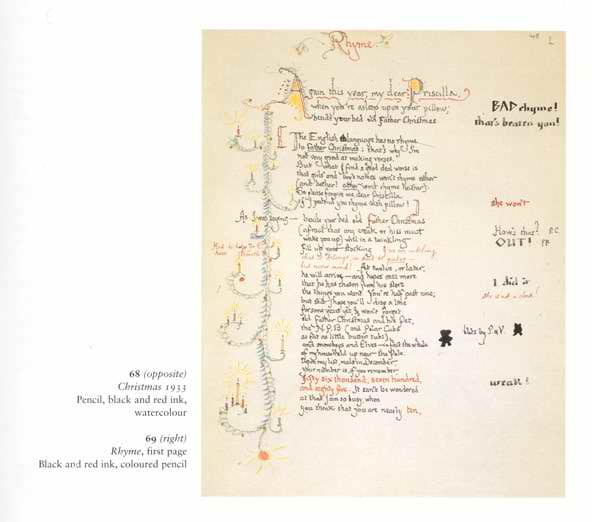 Rhyme
Again this year, my dear Priscilla,
when you're asleep upon your pillow;
beside your bed old Father Christmas
BAD rhyme!
that's beaten you!
[The English language has no rhyme
to Father Christmas: that's why I'm
not very good at making verses.
But what I find a good deal worse is
that girls' and boys' names won't rhyme either
(and bother! either won't rhyme neither).
So please forgive me, dear Priscilla,
if I pretend you rhyme with pillow!]
she won't
As I was saying —
beside your bed old Father Christmas
(afraid that any creak or hiss must
wake you up) will in a twinkling
fill up your stocking
How's that? F.C.
OUT! P.B.
At twelve, or later,
he will arrive — and hopes once more
that he has chosen from his store
the things you want. You're half past nine;
but still I hope you'll drop a line
for some years yet, & won't forget
old Father Christmas and his Pet,
the N.P.B (and Polar Cubs
as fat as little butter tubs),
and snowboys and Elves — in fact the whole
of my household up near the Pole.
Upon my list, made in December,
your number is, if you remember
fifty six thousand, seven hundred,
and eighty five. It can't be wondered
at that I am so busy, when
you think that you are nearly ten,
I did it
she is not a clock!
blots by P & V.
weak!
68 (opposite)
Christmas 1933
Pencil, black and red ink,
watercolour
69 (right)
Rhyme, first page
Black and red ink, coloured pencil